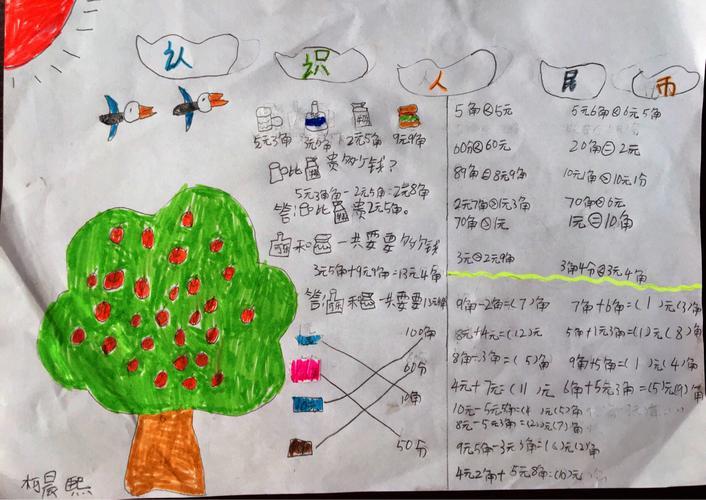 认识人民币
5元3角 2元5角 9元9角
比 贵多少钱?
5元3角-2元5角=2元8角
答: 比 贵2元5角。
和 一共要要多少钱
3元5角+9元9角=13元4角
答: 和 一共要要13元4角
100角
60分
10角
50分
5角<5元
60分<60元
89角=8元9角
2元7角>1元3角
70角>1元
3元>2元9角
5元6角<6元5角
20角=2元
10元1角>10元1分
70角>6元
1元=10角
3角4分<3元4角
9角-2角=(7)角
8元+4元=(12)元
8角-3角=(5)角
4元+7元=(11)元
10元-5元5角=(4)元(5)角
8元-5元3角=(2)元(7)角
9元5角-3元3角=(6)元(2)角
4元2角+5元8角=(10)元
7角+6角=(1)元(3)角
5角+1元3角=(1)元(8)角
9角+5角=(1)元(4)角
6角+5元3角=(5)元(9)角
柯晨熙